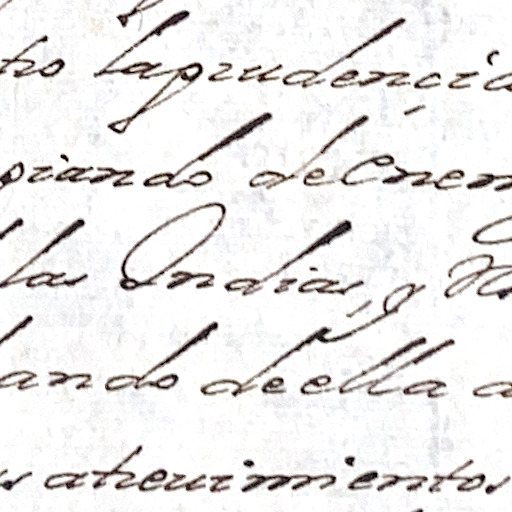 tro laprudençia
piando de Enem
las Indias, y
ando de ella a
s atreuimientos